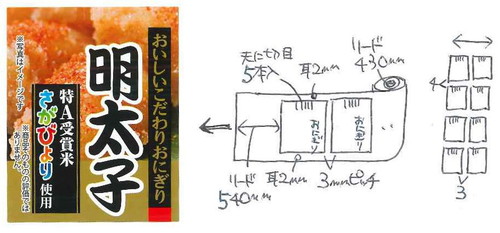 おいしいこだわりおにぎり
明太子
特A受賞米
さがびより
使用
※写真はイメージです
※商品そのものの評価では
ありません。
天に切り目
5本入
耳2mm
リード
430mm
おにぎり
おにぎり
リード
540mm
耳2mm
3mmピッチ
4
3